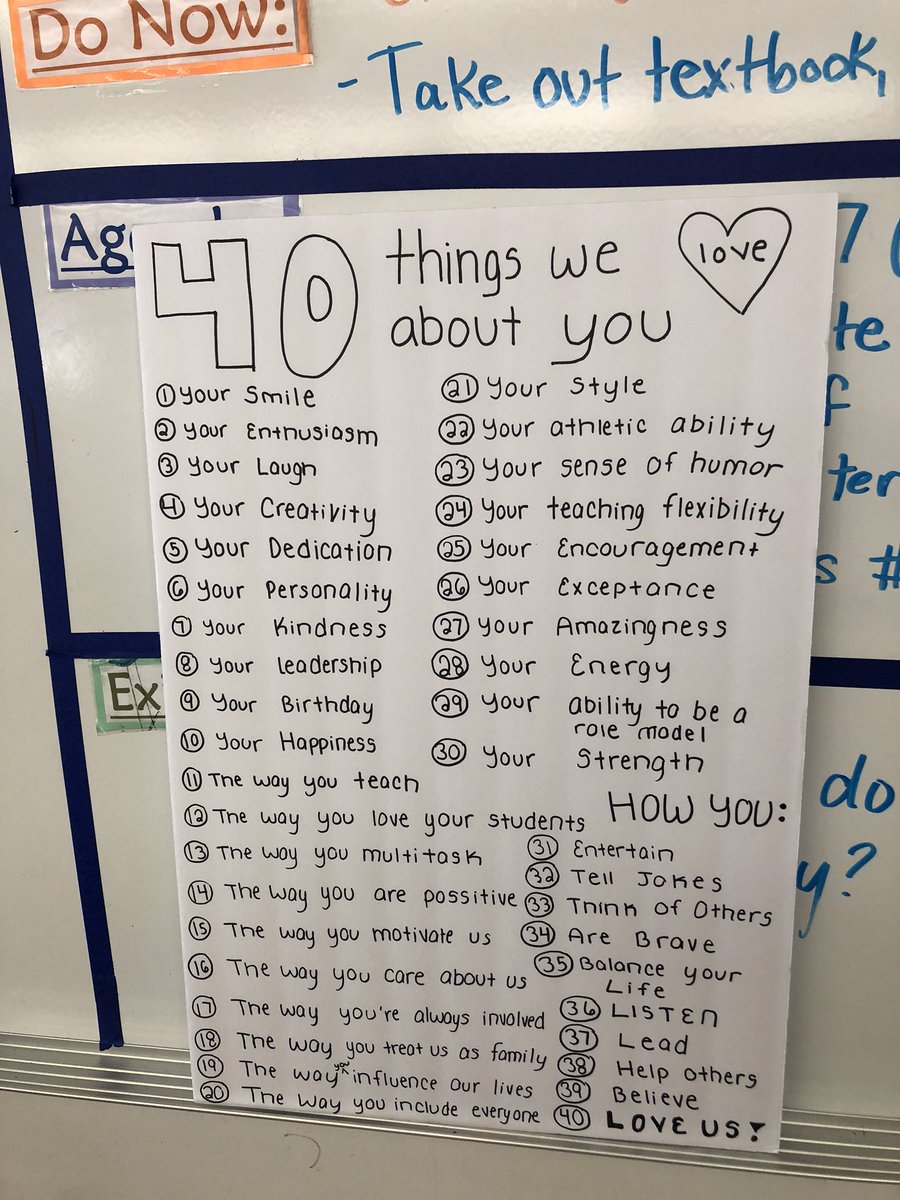 Do Now:
- Take out textbook,
40 things we love
about you
① Your Smile
② Your Enthusiasm
③ Your Laugh
④ Your Creativity
⑤ Your Dedication
⑥ Your Personality
⑦ Your Kindness
⑧ Your leadership
⑨ Your Birthday
⑩ Your Happiness
⑪ The way you teach
⑫ The way you love your students
⑬ The way you multitask
⑭ The way you are possitive
⑮ The way you motivate us
⑯ The way you care about us
⑰ The way you're always involved
⑱ The way you treat us as family
⑲ The way you influence our lives
⑳ The way you include everyone
㉑ Your Style
㉒ Your athletic ability
㉓ Your sense of humor
㉔ Your teaching flexibility
㉕ Your Encouragement
㉖ Your Exceptance
㉗ Your Amazingness
㉘ Your Energy
㉙ Your ability to be a
role model
㉚ Your Strength
HOW YOU:
㉛ Entertain
㉜ Tell Jokes
㉝ Think of Others
㉞ Are Brave
㉟ Balance your
Life
㊱ LISTEN
㊲ Lead
㊳ Help others
㊴ Believe
㊵ LOVE US!
do
y?